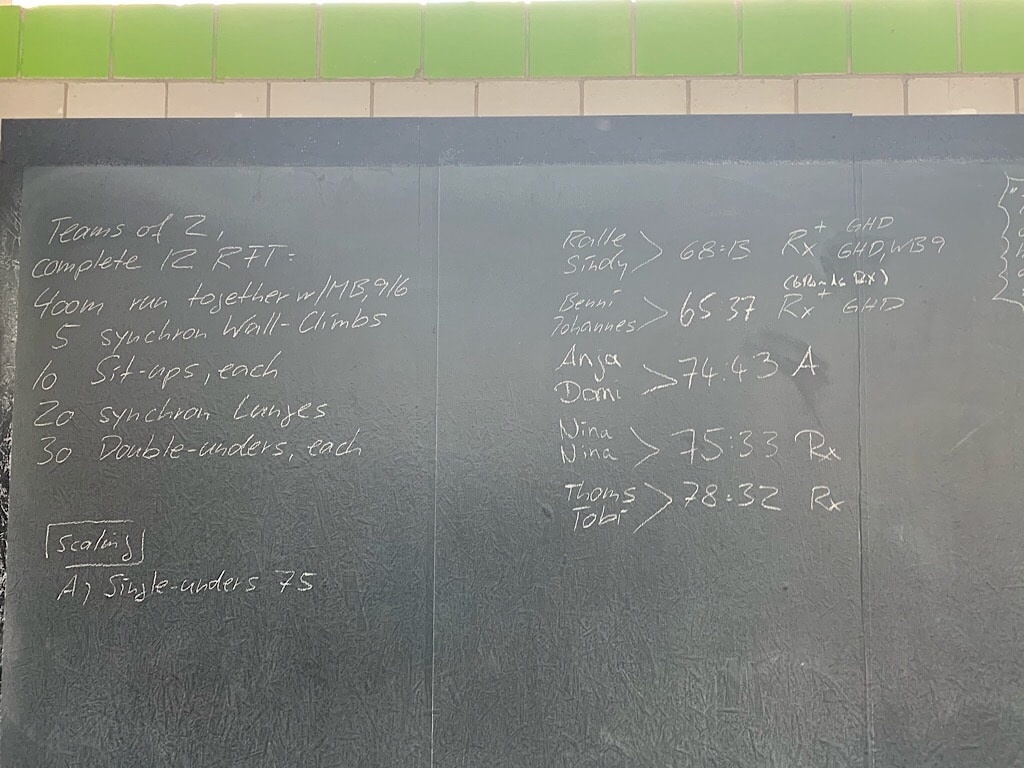 Teams of 2,
complete 12 RFT:
400m run together w/MB, 9/6
5 synchron Wall-Climbs
10 Sit-ups, each
20 synchron Lunges
30 Double-unders, each
Scaling
A) Single-unders 75
Ralle
Sindy > 68:13 Rx+ GHD
GHD, WB 9
Benni
Johannes > 65:37 Rx+ GHD
Anja
Domi > 74:43 A
Nina
Nina > 75:33 Rx
Thoms
Tobi > 78:32 Rx